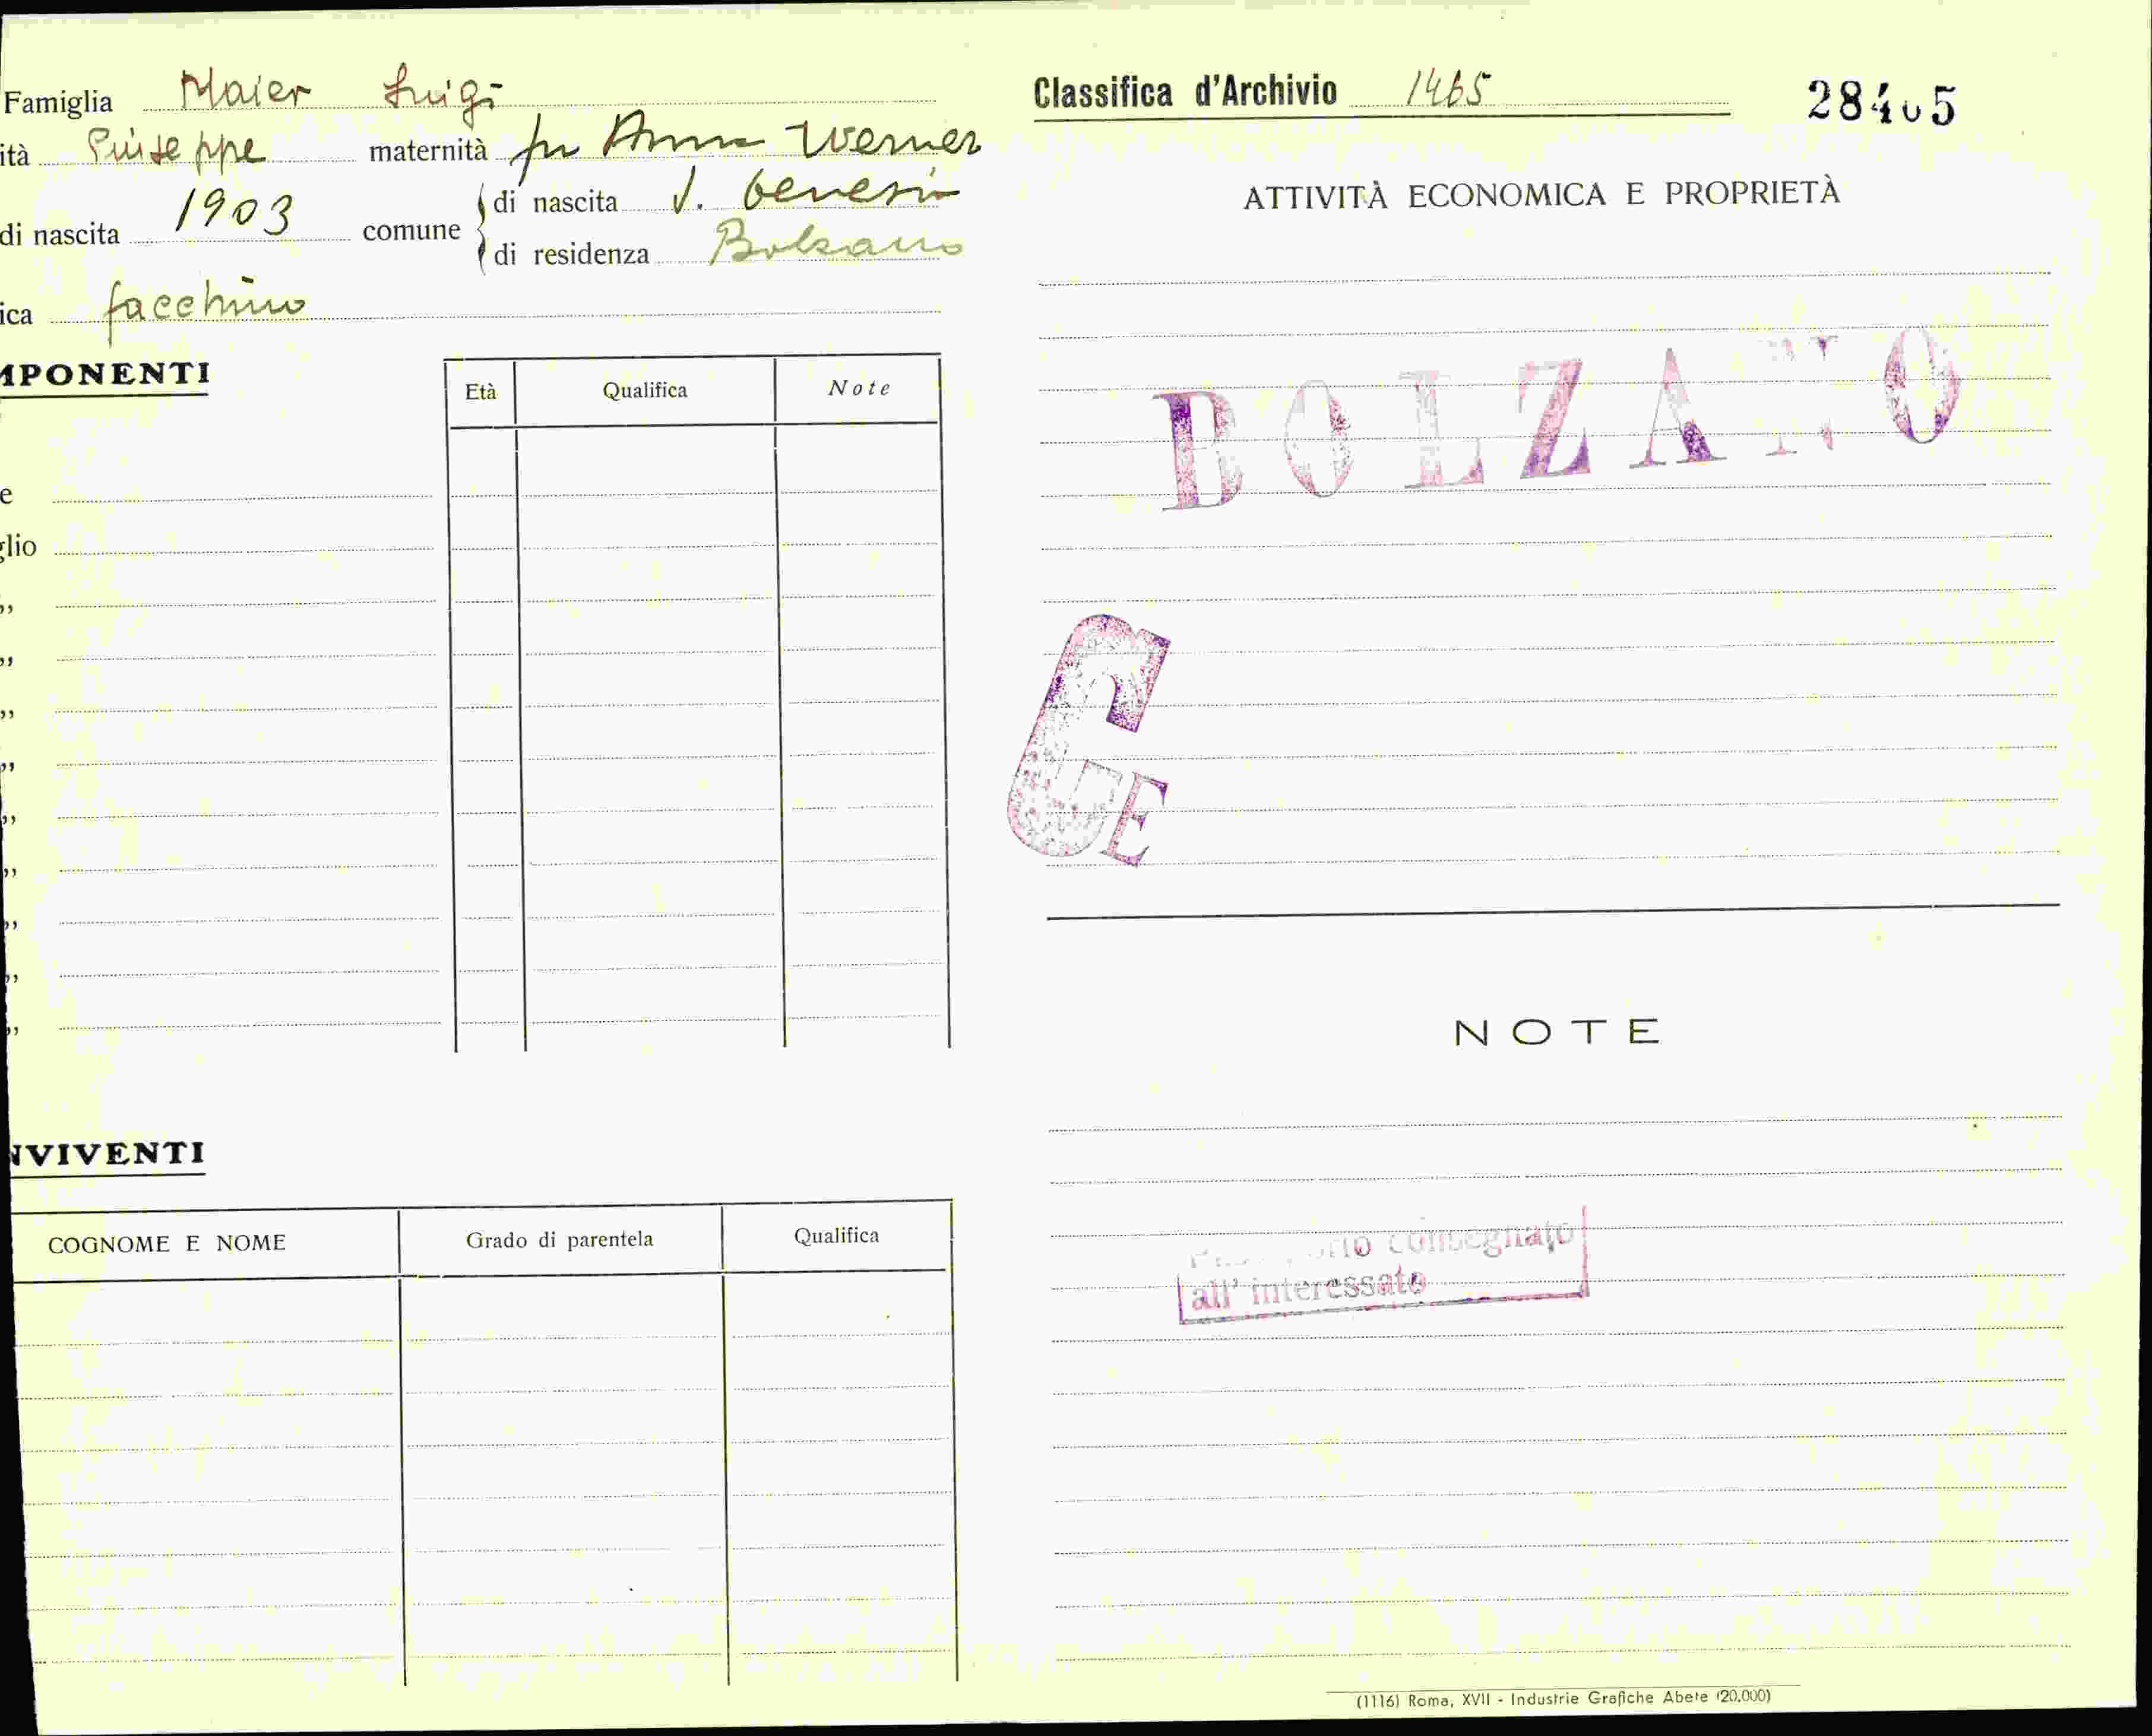 Famiglia Maier Luigi
ità Giuseppe maternità fu Anna Werner
di nascita 1903 comune di nascita S. Genesio
di residenza Bolzano
ica facchino
MPONENTI
Età Qualifica Note
e
glio
,,
,,
,,
,,
,,
,,
,,
,,
,,
NVIVENTI
COGNOME E NOME Grado di parentela Qualifica
Classifica d'Archivio 1465 28405
ATTIVITÀ ECONOMICA E PROPRIETÀ
BOLZANO
C E
NOTE
consegnato
all' interessato
(1116) Roma, XVII - Industrie Grafiche Abete (20.000)